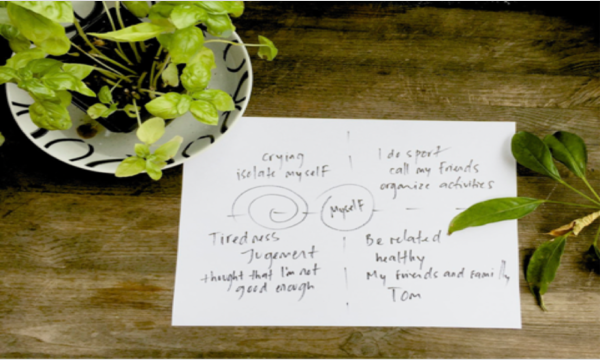 crying
isolate myself
I do sport
call my friends
organize activities
myself
Tiredness
Jugement
thought that I'm not
good enough
Be related
healthy
My friends and family
Tom